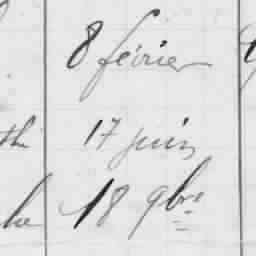 8 février
th 17 juin
he 18 9bre